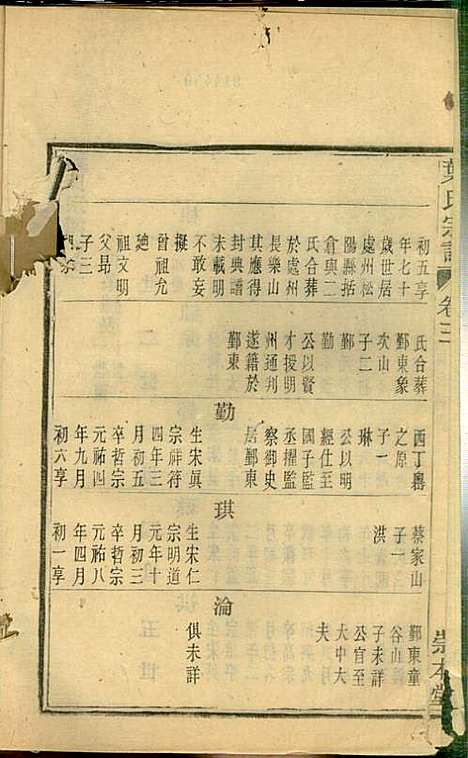 葉氏宗譜 卷三 崇本堂
初五享
年七十
歲世居
處州松
陽縣括
倉與二
氏合葬
於處州
長樂山
其應得
封典譜
未載明
不敢妄
擬
曾祖允
廸
祖文明
父昂
子三
氏合葬
鄞東象
坎山
子二
鄞
勤
公以賢
才授明
州通判
遂籍於
鄞東
勤
生宋真
宗祥符
四年三
月初五
卒哲宗
元祐四
年九月
初六享
西丁嶴
之原
子一
琳
公以明
經仕至
國子監
丞擢監
察御史
居鄞東
琪
生宋仁
宗明道
元年十
月初三
卒哲宗
元祐八
年四月
初一享
蔡家山
子一
洪
淪
俱未詳
鄞東童
谷山
子未詳
公官至
大中大
夫